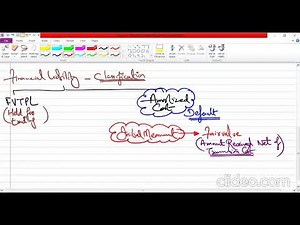 Financial Liability - Classification
FVTPL
(Held for
Amortized
Cost
Default
Initial Measurement → Fair value
(Amount Received Net of
Transaction Cost
clideo.com